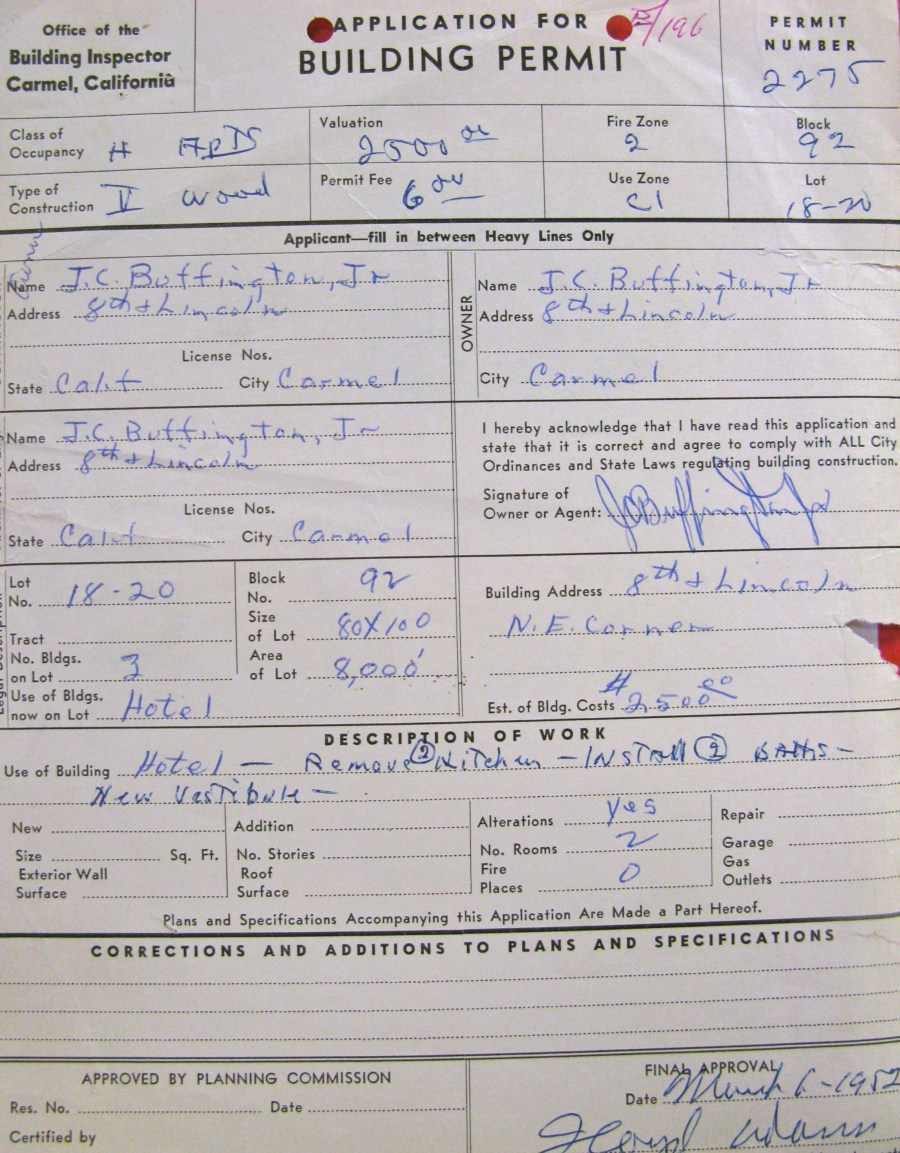 Office of the
Building Inspector
Carmel, California
APPLICATION FOR
BUILDING PERMIT
B/196
PERMIT
NUMBER
2275
Class of
Occupancy H APTS
Valuation
2500 00
Fire Zone
2
Block
92
Type of
Construction V Wood
Permit Fee
6 00
Use Zone
C1
Lot
18-20
Applicant—fill in between Heavy Lines Only
Name J.C. Buffington, Jr
Address 8th & Lincoln
License Nos.
State Calif City Carmel
OWNER
Name J.C. Buffington, Jr
Address 8th & Lincoln
City Carmel
Name J.C. Buffington, Jr
Address 8th & Lincoln
License Nos.
State Calif City Carmel
I hereby acknowledge that I have read this application and
state that it is correct and agree to comply with ALL City
Ordinances and State Laws regulating building construction.
Signature of
Owner or Agent: JC Buffington Jr
Lot
No. 18-20
Block
No. 92
Tract
Size
of Lot 80X100
No. Bldgs.
on Lot 3
Area
of Lot 8,000'
Use of Bldgs.
now on Lot Hotel
Building Address 8th & Lincoln
N.E. Corner
Est. of Bldg. Costs $2500.00
DESCRIPTION OF WORK
Use of Building Hotel — Remove 2 Kitchen — Install 2 Baths —
New Vestibule —
New
Addition
Alterations yes
Repair
Size Sq. Ft.
No. Stories
No. Rooms 2
Garage
Exterior Wall
Surface
Roof
Surface
Fire
Places 0
Gas
Outlets
Plans and Specifications Accompanying this Application Are Made a Part Hereof.
CORRECTIONS AND ADDITIONS TO PLANS AND SPECIFICATIONS
APPROVED BY PLANNING COMMISSION
Res. No. Date
Certified by
FINAL APPROVAL
Date March 6-1952
Floyd Adams